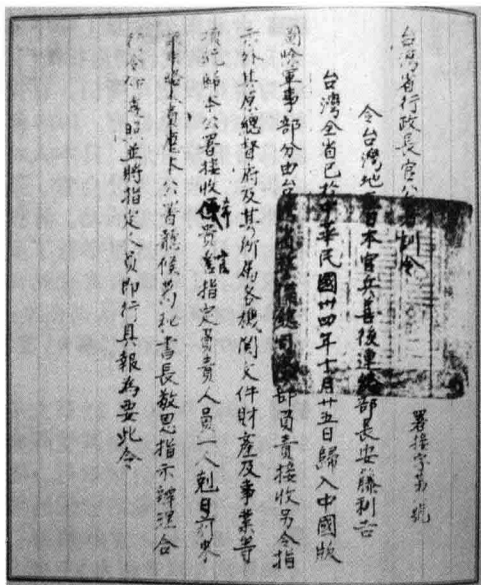 台灣省行政長官公署訓令
署接字第 號
令台灣地區日本官兵善後連絡部長安藤利吉
台灣全省已於中華民國卅四年十月廿五日歸入中國版
圖除軍事部分由台灣省警備總司令部負責接收另令指
示外其原總督府及其所屬各機關文件財產及事業等
項統歸本公署接收 貴官指定負責人員一人剋日前來
本公署聽候葛秘書長敬思指示辦理合
並將指定人員即行具報為要此令